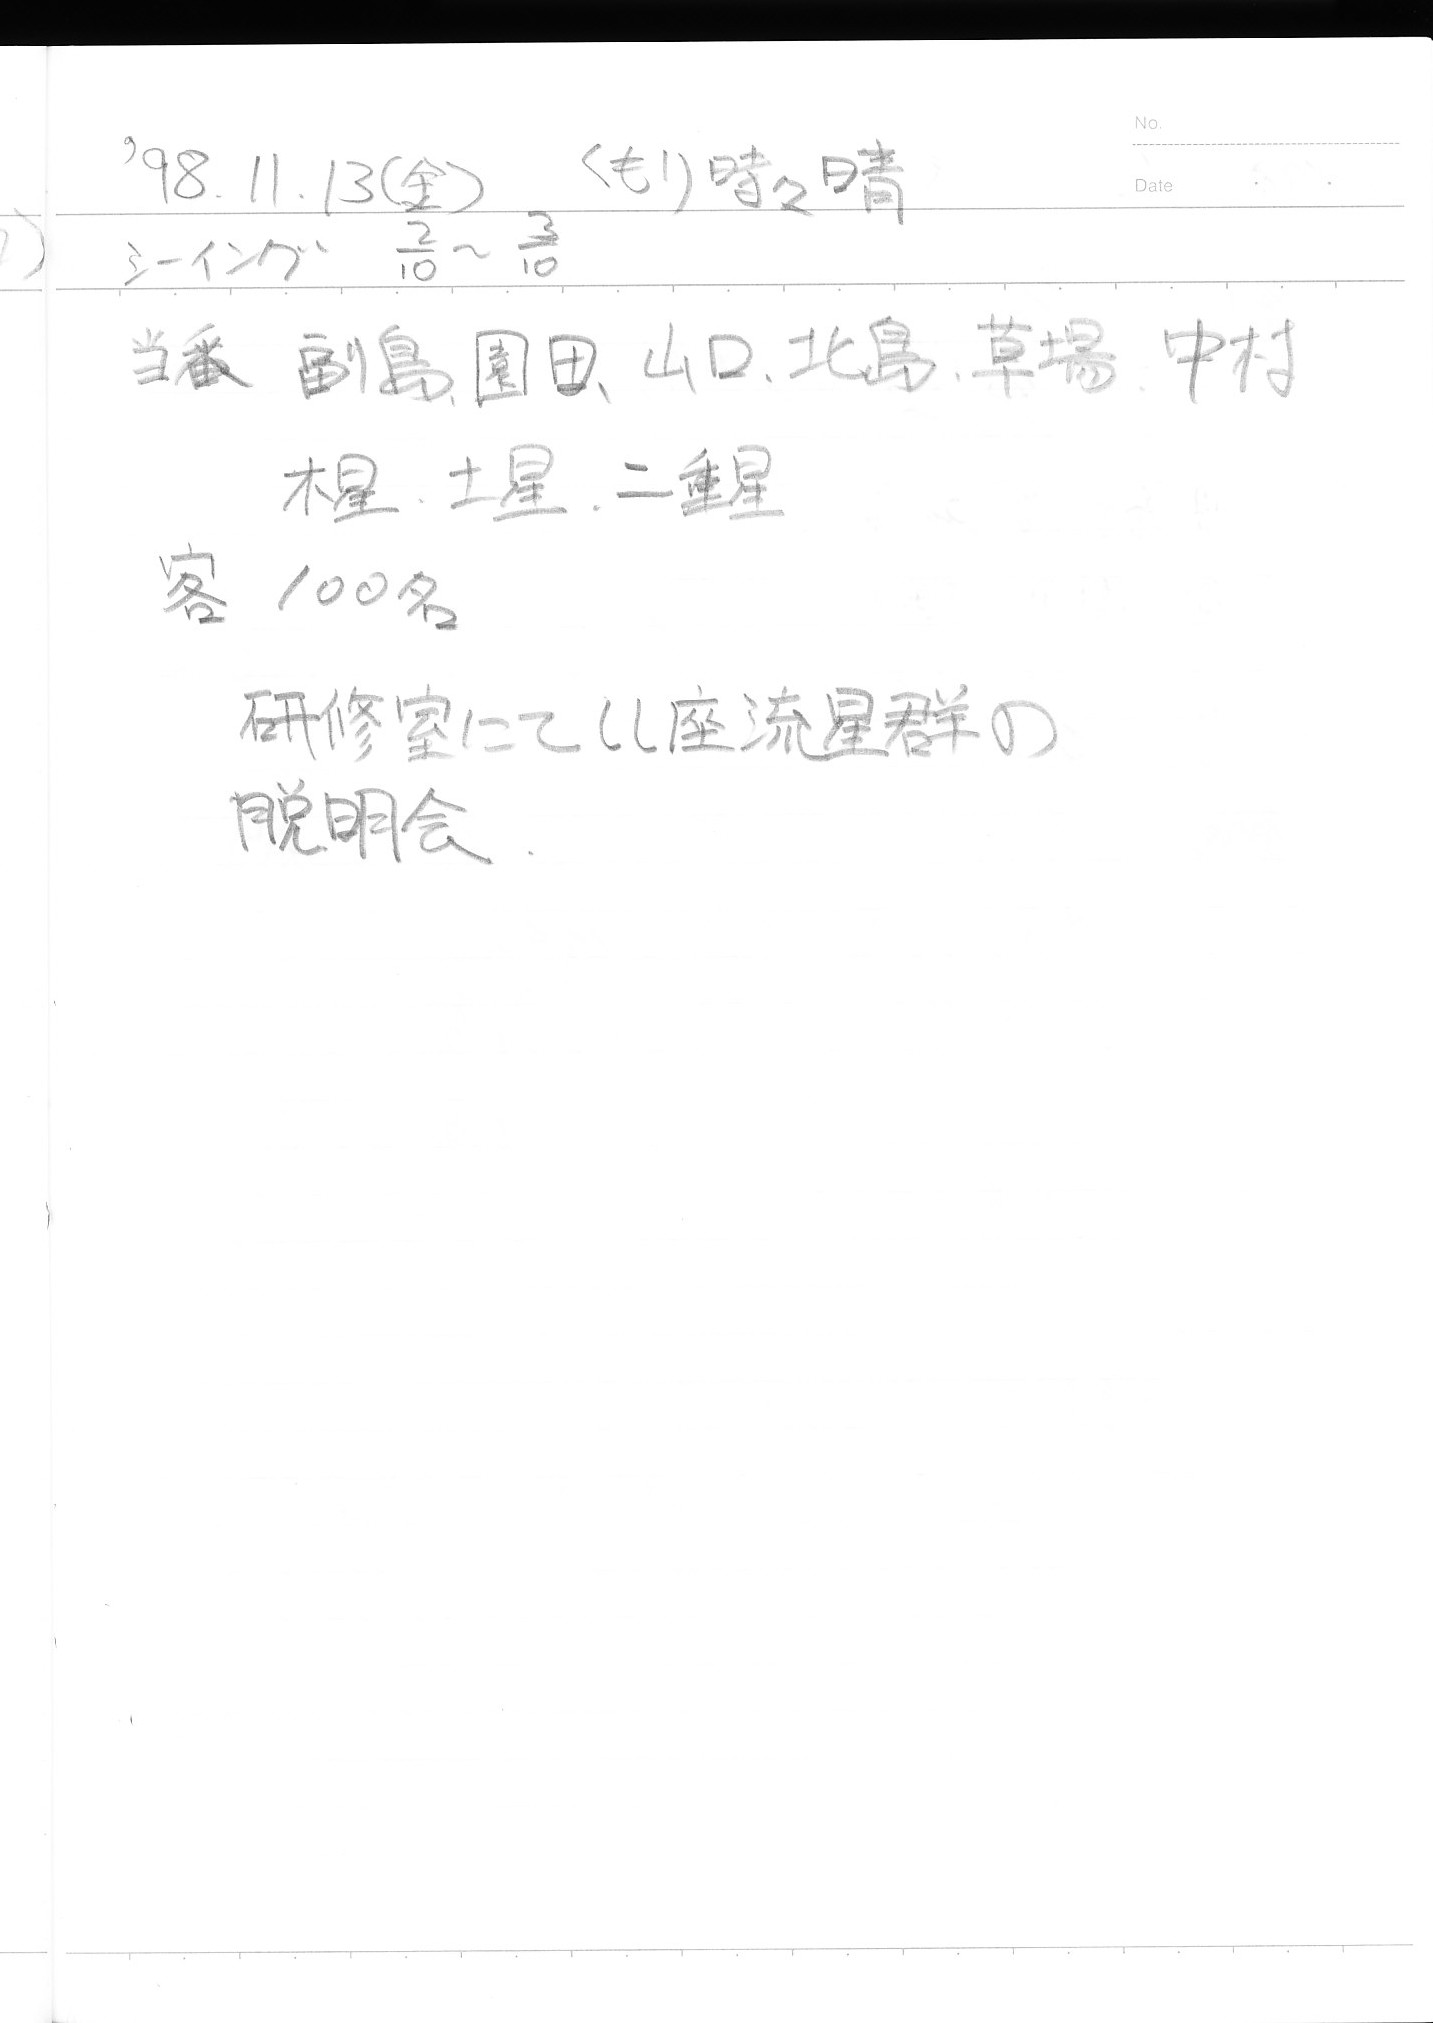 No.
'98.11.13(金) くもり時々晴
Date
シーイング 2/10～3/10
当番 副島、園田、山口、北島、草場、中村
木星、土星、二重星
客 100名
研修室にてしし座流星群の
脱明会.